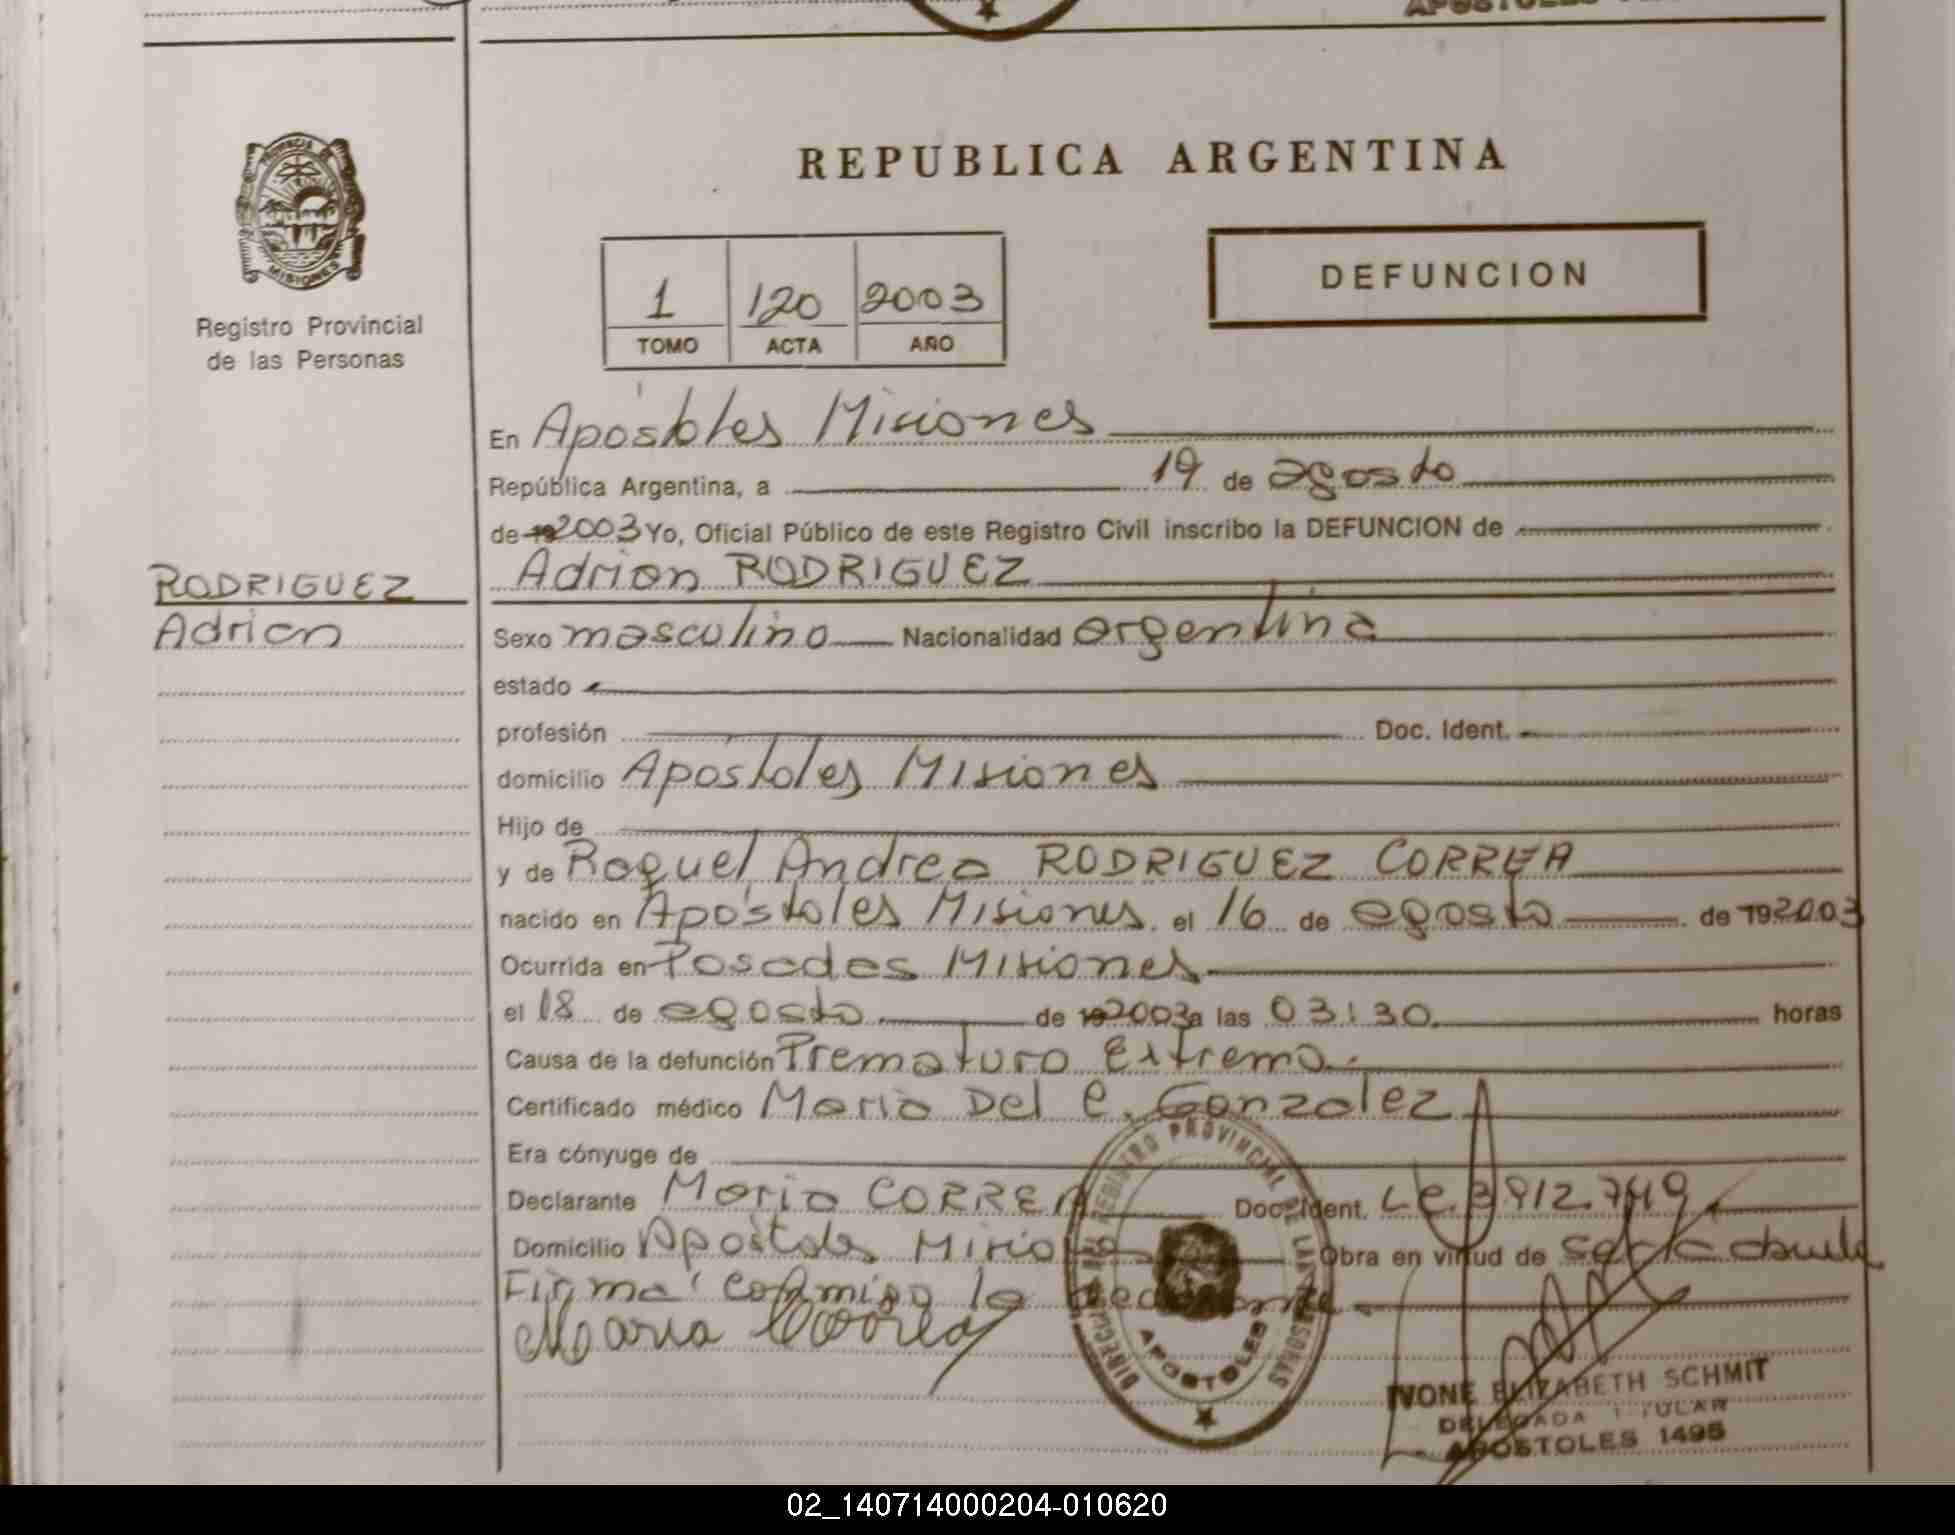 PROVINCIA DE
MISIONES
Registro Provincial
de las Personas
REPUBLICA ARGENTINA
1 120 2003
TOMO ACTA AÑO
DEFUNCION
En Apóstoles Misiones
República Argentina, a 19 de agosto
de 19 2003 Yo, Oficial Público de este Registro Civil inscribo la DEFUNCION de
RODRIGUEZ
Adrian
Adrian RODRIGUEZ
Sexo masculino Nacionalidad argentina
estado
profesión Doc. Ident.
domicilio Apostoles Misiones
Hijo de
y de Raquel Andrea RODRIGUEZ CORREA
nacido en Apóstoles Misiones el 16 de agosto de 19 2003
Ocurrida en Posadas Misiones
el 18 de agosto de 19 2003 a las 03:30 horas
Causa de la defunción Prematuro Extremo.
Certificado médico Maria Del C. Gonzalez
Era cónyuge de
Declarante Maria CORREA Doc. Ident. LC. 3912.749
Domicilio Apóstoles Misiones Obra en virtud de ser la abuela
Firma conmigo la declarante
Maria Correa
DIRECCION DEL REGISTRO PROVINCIAL DE LAS PERSONAS
APOSTOLES
IVONE ELIZABETH SCHMIT
DELEGADA TITULAR
APOSTOLES 1495
02_140714000204-010620